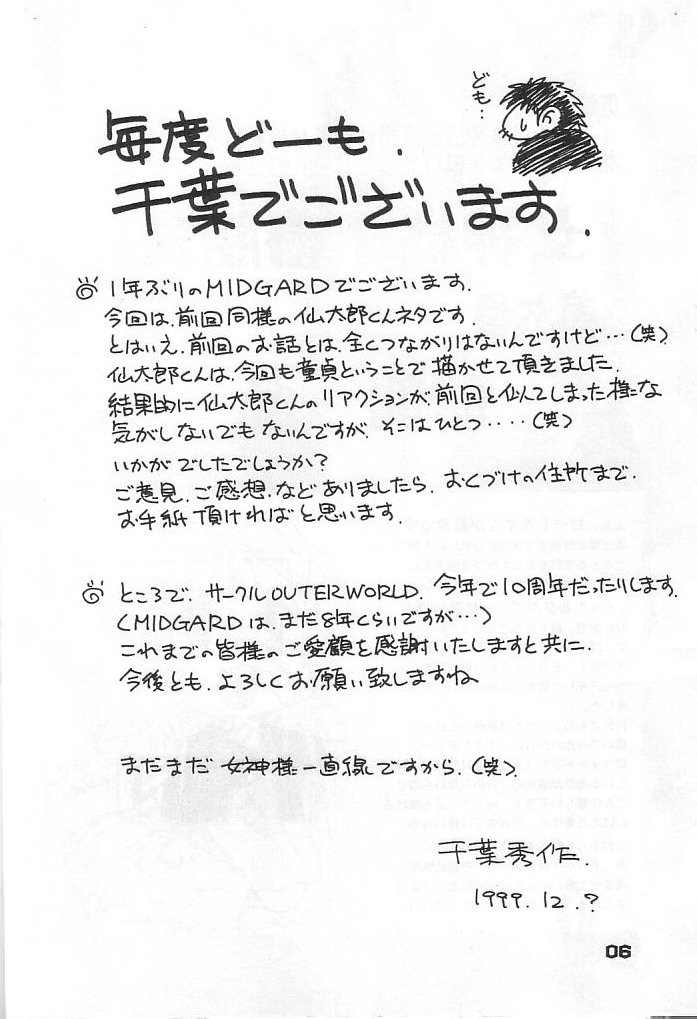 ども…
毎度どーも.
千葉でございます.
1年ぶりのMIDGARDでございます.
今回は、前回同様の仙太郎くんネタです.
とはいえ、前回のお話とは、全くつながりはないんですけど…(笑)
仙太郎くんは、今回も童貞ということで描かせて頂きました.
結果的に仙太郎くんのリアクションが、前回と似てしまった様な
気がしないでもないんですが、そこはひとつ‥‥(笑)
いかがでしたでしょうか?
ご意見、ご感想、などありましたら、おくづけの住所まで、
お手紙頂ければと思います.
ところで、サークルOUTERWORLD、今年で10周年だったりします.
(MIDGARDは、まだ8年くらいですが…)
これまでの皆様のご愛顧を感謝いたしますと共に、
今後とも、よろしくお願い致しますね
まだまだ女神様一直線ですから、(笑).
千葉秀作.
1999.12.?
06